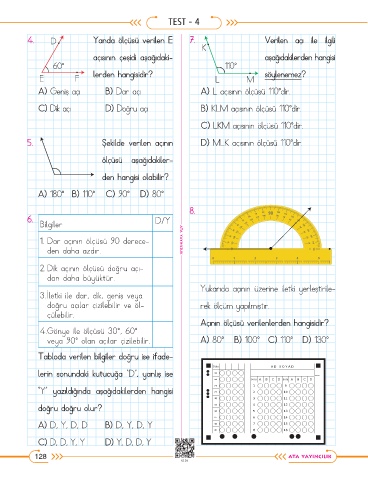 TEST - 4
4.
D
60°
E F
Yanda ölçüsü verilen E
açısının çeşidi aşağıdaki-
lerden hangisidir?
A) Geniş açı B) Dar açı
C) Dik açı D) Doğru açı
5.
Şekilde verilen açının
ölçüsü aşağıdakiler-
den hangisi olabilir?
A) 180° B) 110° C) 90° D) 80°
6.
Bilgiler D/Y
1. Dar açının ölçüsü 90 derece-
den daha azdır.
2. Dik açının ölçüsü doğru açı-
dan daha büyüktür.
3. İletki ile dar, dik, geniş veya
doğru açılar çizilebilir ve öl-
çülebilir.
4. Gönye ile ölçüsü 30°, 60°
veya 90° olan açılar çizilebilir.
Tabloda verilen bilgiler doğru ise ifade-
lerin sonundaki kutucuğa "D", yanlış ise
"Y" yazıldığında aşağıdakilerden hangisi
doğru doğru olur?
A) D, Y, D, D B) D, Y, D, Y
C) D, D, Y, Y D) Y, D, D, Y
7.
K
110°
L M
Verilen açı ile ilgili
aşağıdakilerden hangisi
söylenemez?
A) L açısının ölçüsü 110°dir.
B) KLM açısının ölçüsü 110°dir.
C) LKM açısının ölçüsü 110°dir.
D) MLK açısının ölçüsü 110°dir.
8.
Yukarıda açının üzerine iletki yerleştirile-
rek ölçüm yapılmıştır.
Açının ölçüsü verilenlerden hangisidir?
A) 80° B) 100° C) 110° D) 130°
AD SOYAD
128
ATA YAYINCILIK